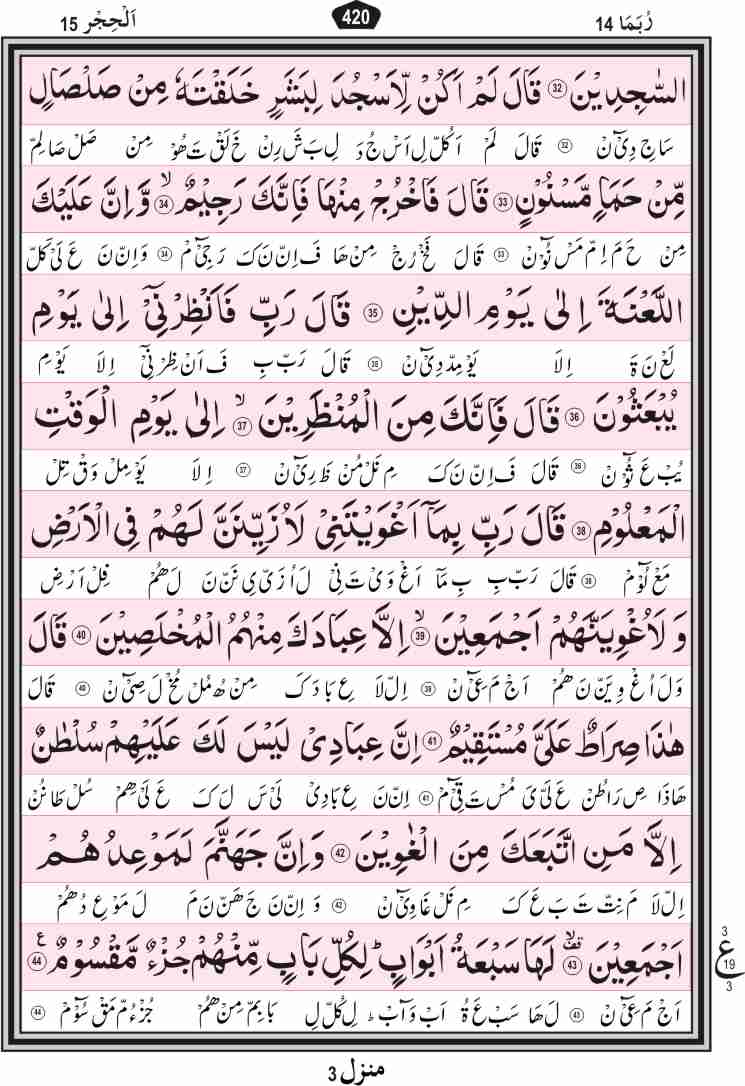 رُبَمَا 14 420 اَلْحِجْر 15
السّٰجِدِيْنَ 32 قَالَ لَمْ اَكُنْ لِّاَسْجُدَ لِبَشَرٍ خَلَقْتَهٗ مِنْ صَلْصَالٍ
سَاجِ دِیْٓ نْ 32 قَالَ لَمْ اَكُلْ لِ اَسْ جُ دَ لِ بَ شَ رِنْ خَ لَقْ تَ هُوْ مِنْ صَلْ صَا لِمْ
مِّنْ حَمَاٍ مَّسْنُوْنٍ 33 قَالَ فَاخْرُجْ مِنْهَا فَاِنَّكَ رَجِيْمٌ ۙ 34 وَّاِنَّ عَلَيْكَ
مِنْ حَ مَ اِمْ مَسْ نُوْٓ نْ 33 قَالَ فَخْ رُجْ مِنْ هَا فَ اِنْ نَ كَ رَ جِیْٓ مْ 34 وَ اِنْ نَ عَ لَیْ كَلْ
اللَّعْنَةَ اِلٰى يَوْمِ الدِّيْنِ 35 قَالَ رَبِّ فَاَنْظِرْنِىْٓ اِلٰى يَوْمِ
لَعْ نَ ةَ اِلَا یَوْ مِدْ دِیْٓ نْ 35 قَالَ رَبْ بِ فَ اَنْ ظِرْ نِیْٓ اِلَا یَوْ مِ
يُبْعَثُوْنَ 36 قَالَ فَاِنَّكَ مِنَ الْمُنْظَرِيْنَ ۙ 37 اِلٰى يَوْمِ الْوَقْتِ
یُبْ عَ ثُوْٓ نْ 36 قَالَ فَ اِنْ نَ كَ مِ نَلْ مُنْ ظَ رِیْٓ نْ 37 اِلَا یَوْ مِلْ وَقْ تِلْ
الْمَعْلُوْمِ 38 قَالَ رَبِّ بِمَآ اَغْوَيْتَنِىْ لَاُزَيِّنَنَّ لَهُمْ فِى الْاَرْضِ
مَعْ لُوْٓ مْ 38 قَالَ رَبْ بِ بِ مَآ اَغْ وَیْ تَ نِیْ لَ اُ زَیْ یِ نَنْ نَ لَ هُمْ فِلْ اَرْ ضِ
وَ لَاُغْوِيَنَّهُمْ اَجْمَعِيْنَ ۙ 39 اِلَّا عِبَادَكَ مِنْهُمُ الْمُخْلَصِيْنَ 40 قَالَ
وَ لَ اُغْ وِ یَنْ نَ هُمْ اَجْ مَ عِیْٓ نْ 39 اِلْ لَا عِ بَا دَ كَ مِنْ هُ مُلْ مُخْ لَ صِیْٓ نْ 40 قَالَ
هٰذَا صِرَاطٌ عَلَىَّ مُسْتَقِيْمٌ 41 اِنَّ عِبَادِىْ لَيْسَ لَكَ عَلَيْهِمْ سُلْطٰنٌ
هَاذَا صِ رَا طُنْ عَ لَیْ یَ مُسْ تَ قِیْٓ مْ 41 اِنْ نَ عِ بَادِیْ لَیْ سَ لَ كَ عَ لَیْ هِمْ سُلْ طَانُنْ
اِلَّا مَنِ اتَّبَعَكَ مِنَ الْغٰوِيْنَ 42 وَاِنَّ جَهَنَّمَ لَمَوْعِدُهُمْ
اِلْ لَا مَ نِتْ تَ بَ عَ كَ مِ نَلْ غَاوِیْٓ نْ 42 وَ اِنْ نَ جَ هَنْ نَ مَ لَ مَوْ عِ دُ هُمْ
اَجْمَعِيْنَ ۙ 43 لَهَا سَبْعَةُ اَبْوَابٍ ؕ لِكُلِّ بَابٍ مِّنْهُمْ جُزْءٌ مَّقْسُوْمٌ ع 44
ع 3 19 3
اَجْ مَ عِیْٓ نْ 43 لَ هَا سَبْ عَ ةُ اَبْ وَآبْ ؕ لِ كُلْ لِ بَا بِمْ مِنْ هُمْ جُزْءُمْ مَقْ سُوْٓ مْ 44
منزل 3